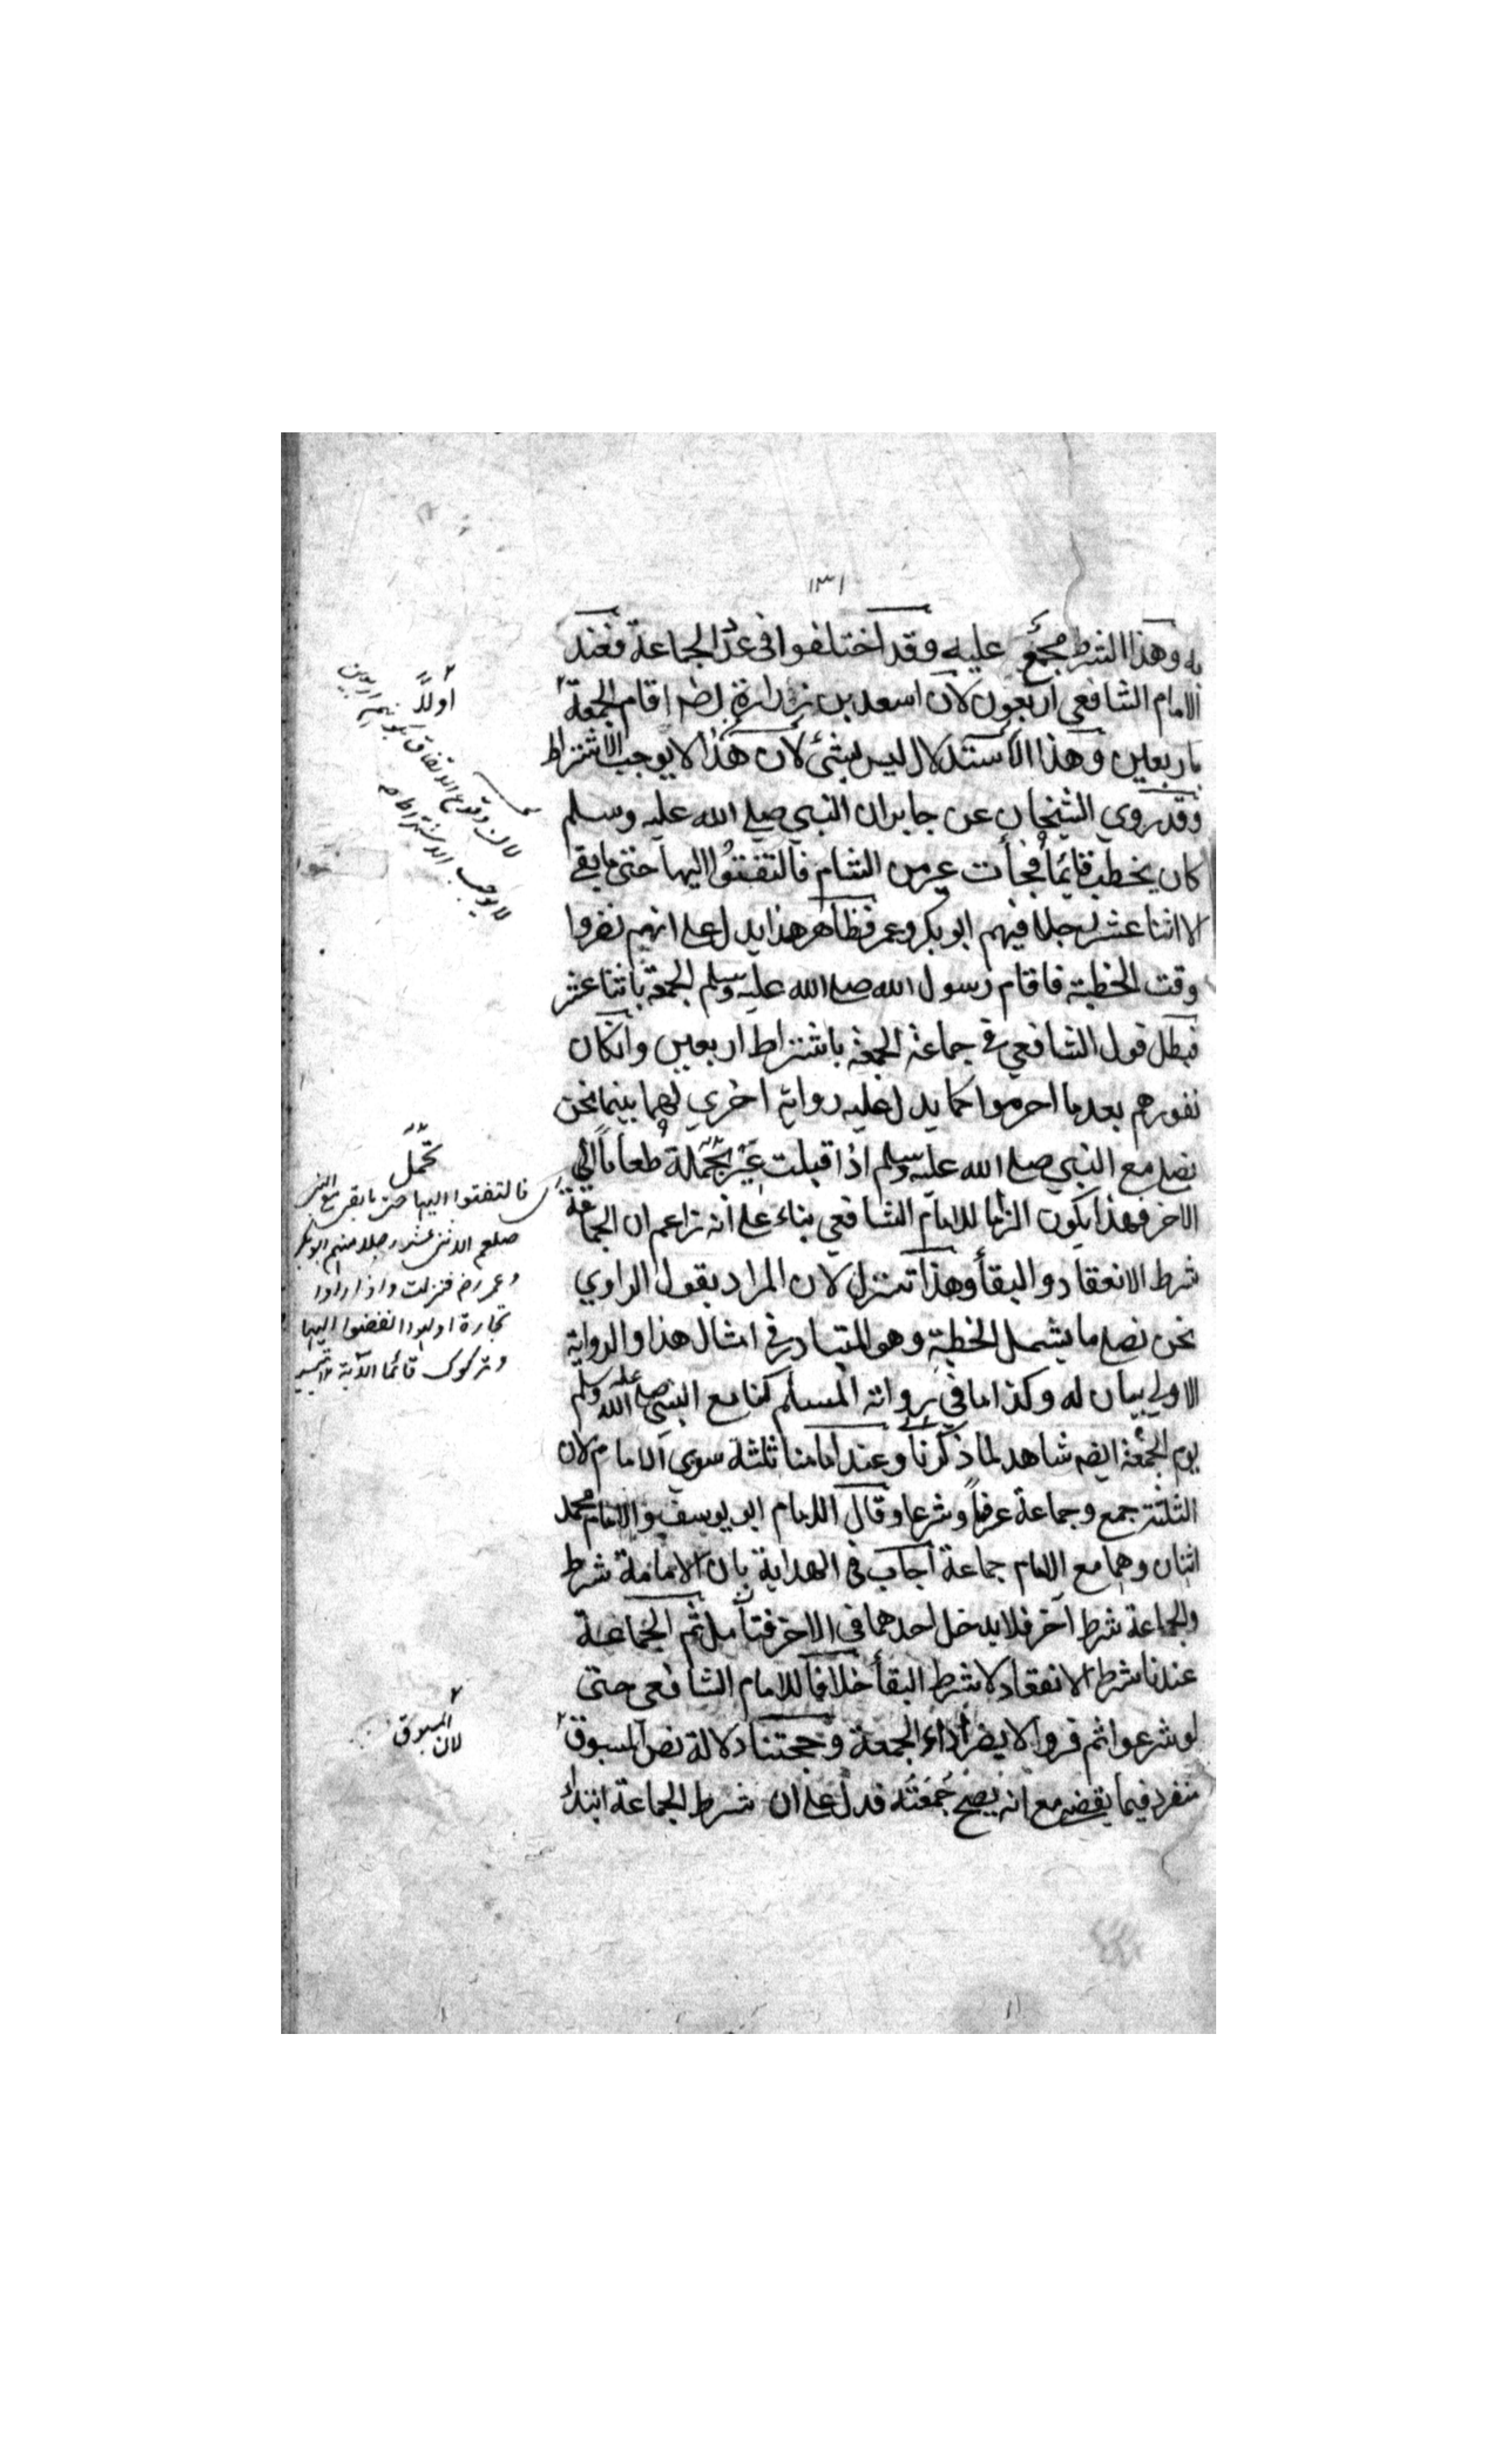 ١٣١
به وهذا الشرط مجمع عليه وقد اختلفوا فى عدد الجماعة فعند
الامام الشافعي اربعون لان اسعد بن زرارة رضه اقام الجمعة
باربعين وهذا الاستدلال ليس بشئ لان هذا لا يوجب الاشتراط
وقد روي الشيخان عن جابر ان النبي صلى الله عليه وسلم
كان يخطب قائما فجأت عير من الشام فالتفتوا اليها حتى ما بقى
الا اثنا عشر رجلا فيهم ابو بكر وعمر فظاهر هذا يدل على انهم نفروا
وقت الخطبة فاقام رسول الله صلى الله عليه وسلم الجمعة باثنا عشر
فبطل قول الشافعي في جماعة الجمعة باشتراط اربعين وانكان
نفورهم بعد ما احرموا كما يدل عليه رواية اخري لهما بينما نحن
نصلي مع النبي صلى الله عليه وسلم اذا قبلت عير تحملة طعاما الي
الاخر فهذا يكون الزاما للامام الشافعي بناء على انه زاعم ان الجماعة
شرط الانعقاد والبقأ وهذا تنزل لان المراد بقول الراوي
نحن نصلي ما يشمل الخطبة وهو المتبادر في امثال هذا والرواية
الاولي بيان له وكذا ما في رواية المسلم كنا مع النبي صلى الله عليه وسلم
يوم الجمعة ايضه شاهد لما ذكرنا وعند امامنا ثلثة سوي الامام لان
الثلثة جمع وجماعة عرفا وشرعا وقال الامام ابو يوسف والامام محمد
اثنان وهما مع الامام جماعة اجاب فى الهداية بان الامامة شرط
والجماعة شرط آخر فلا يدخل احدهما فى الاخر فتأمل ثم الجماعة
عندنا شرط الانعقاد لا شرط البقأ خلافا للامام الشافعى حتى
لو شرعوا ثم فروا لا يضر أداء الجمعة وحجتنا دلالة نص المسبوق
منفرد فيما يقضى مع انه يصح جمعته فدل على ان شرط الجماعة ابتداء
اولا
لان وقوع الاتفاق بكونهم اربعين
لا يوجب الاشتراط
تحمل
فالتفتوا اليها حتى ما بقى مع النبى
صلعم الا اثنى عشر رجلا منهم ابو بكر
وعمر رض فنزلت واذا راوا
تجارة او لهوا انفضوا اليها
وتركوك قائما الآية ١٢ تيسير
لان المسبوق